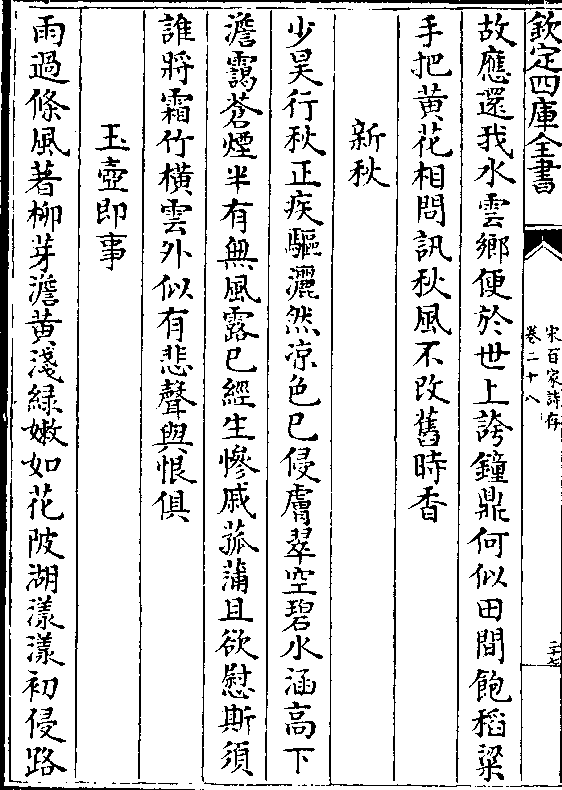 欽定四庫全書
宋百家詩存
卷二十八
三十七
故應還我水雲鄉便於世上誇鐘鼎何似田間飽稻粱
手把黄花相問訊秋風不改舊時香
新秋
少昊行秋正疾驅灑然凉色已侵膚翠空碧水涵高下
澹靄蒼煙半有無風露已經生慘戚菰蒲且欲慰斯須
誰將霜竹橫雲外似有悲聲與恨俱
玉壺即事
雨過條風著柳芽澹黄淺緑嫩如花陂湖漾漾初侵路